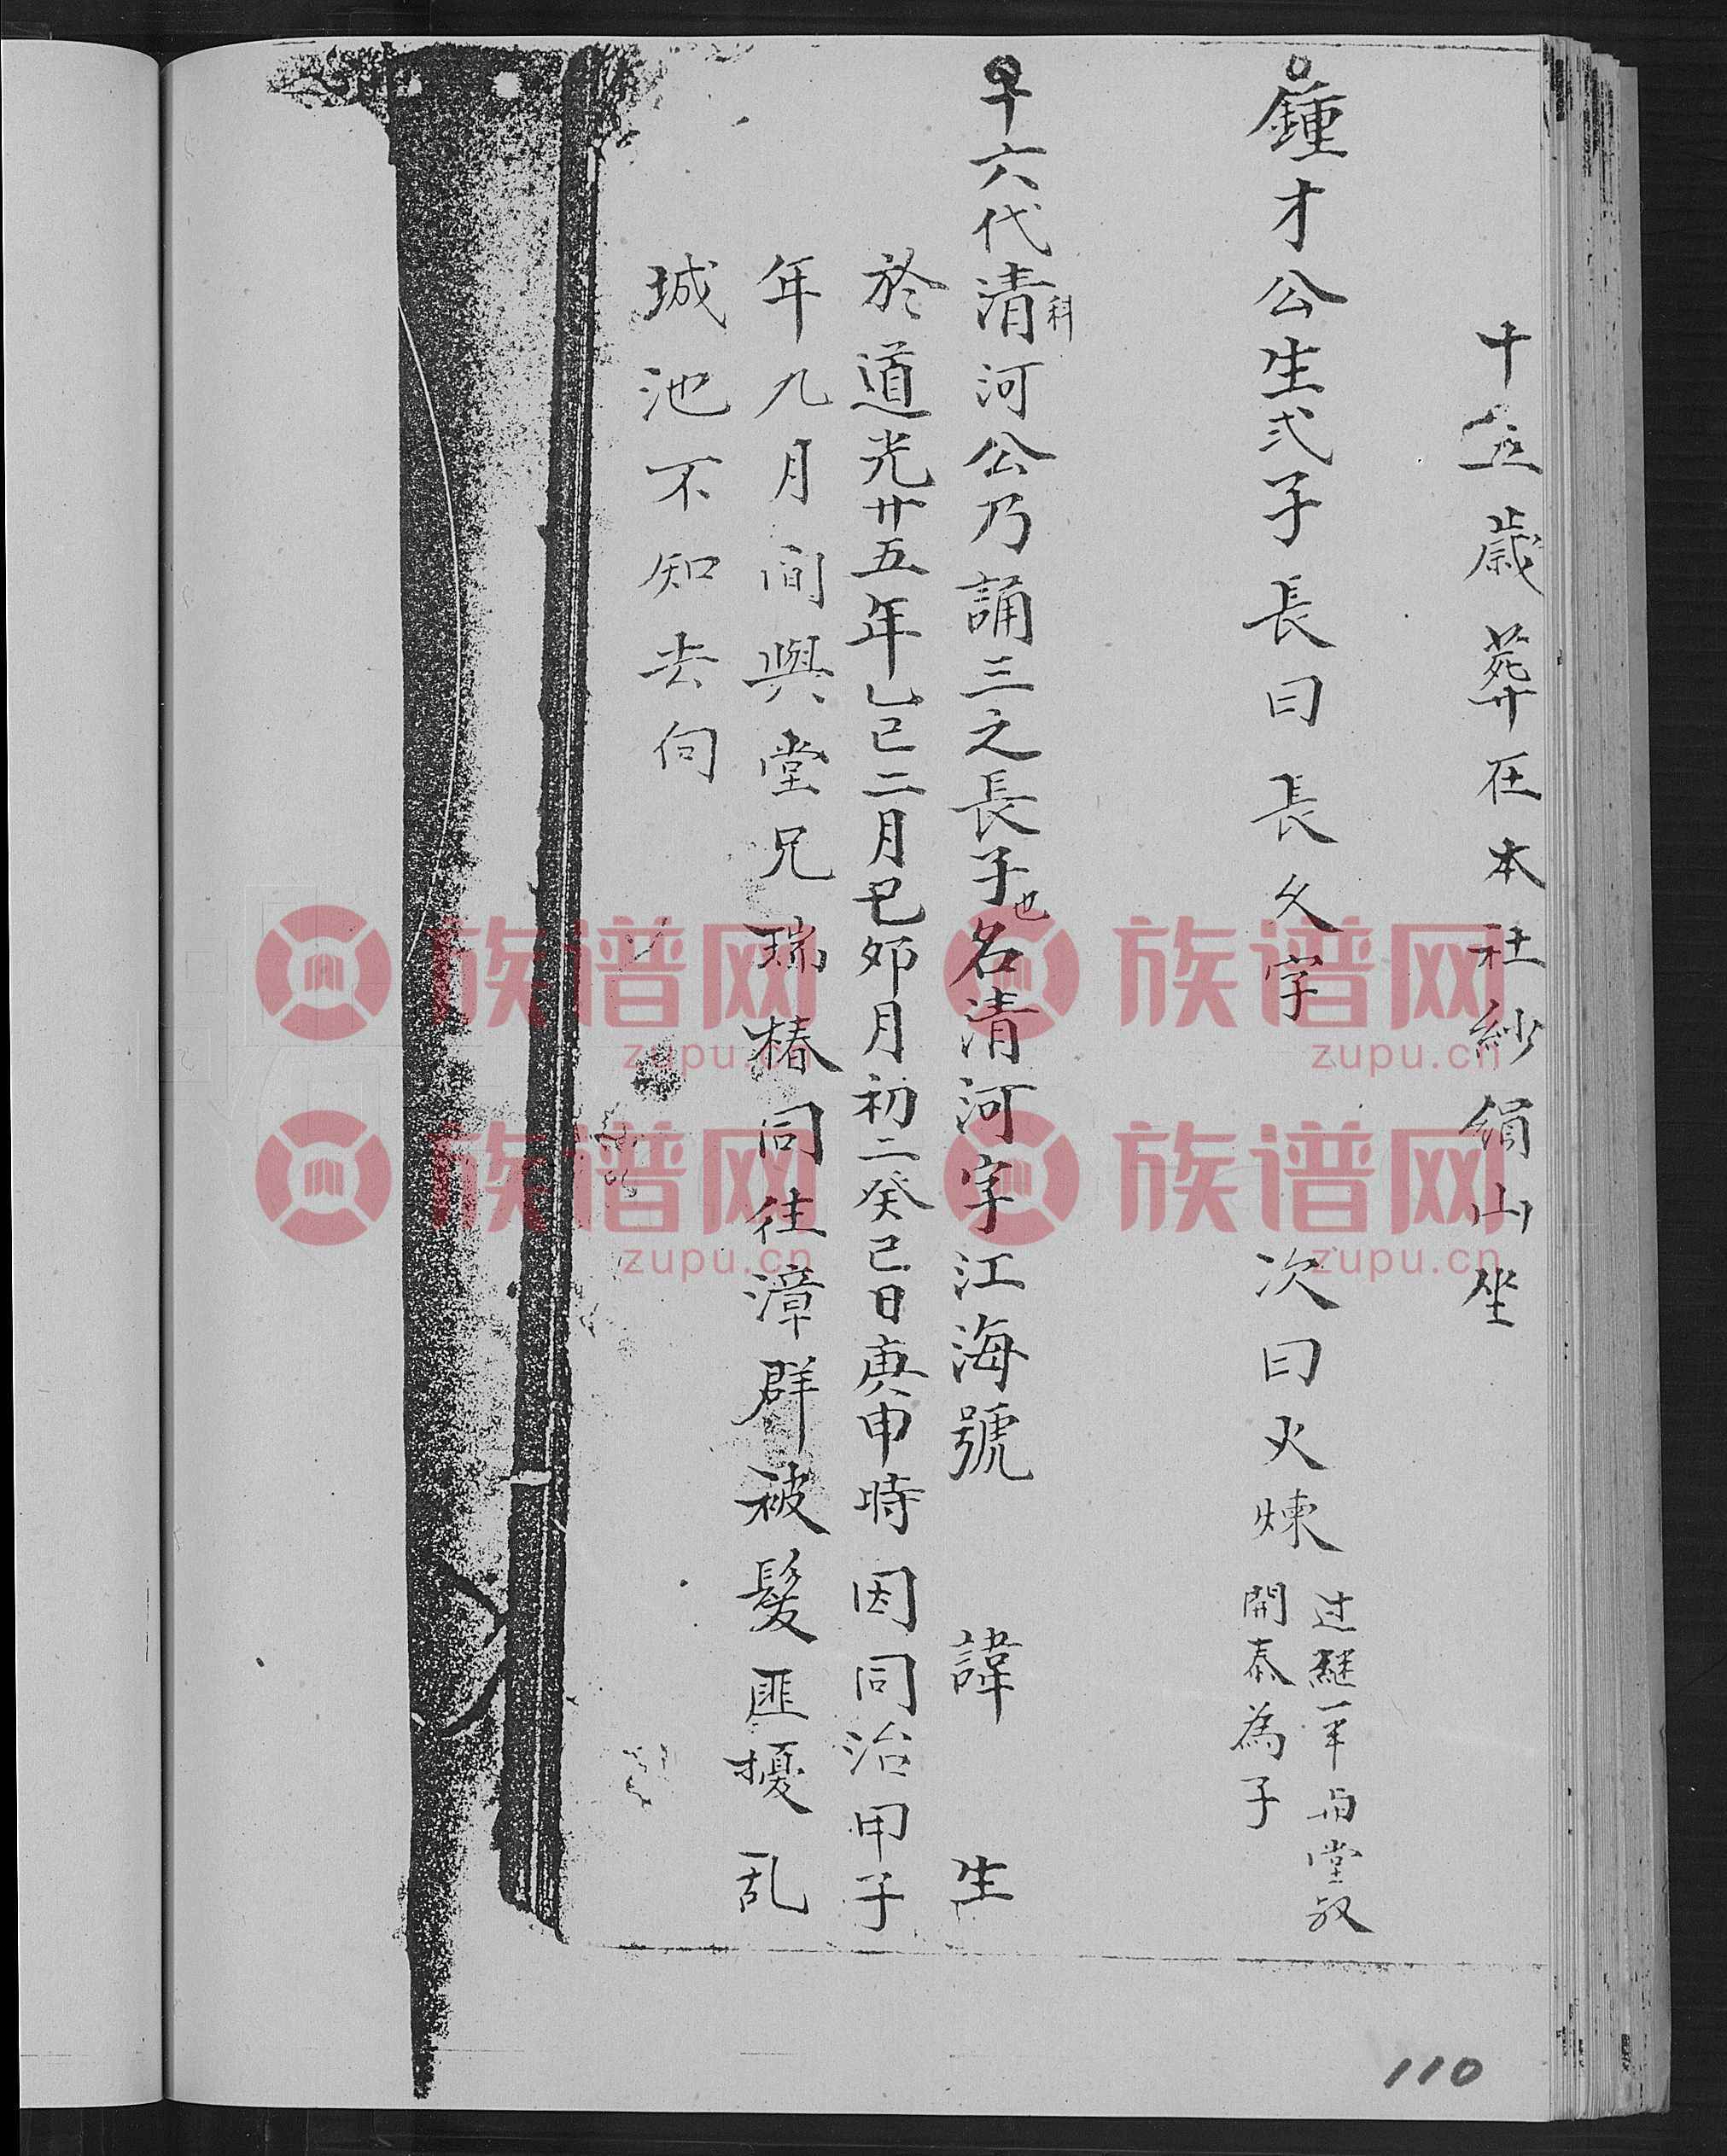 十五歲葬在本社紗絹山坐
鍾才公生弍子長曰長久字 次曰火煉
过継一半与堂叔
開泰為子
十六代清河公乃誦三之長子也名清河字江海號 諱 生
科
於道光廿五年乙巳二月己卯月初二癸巳日庚申時因同治甲子
年九月間與堂兄瑞椿同往漳群被髮匪擾乱
城池不知去向
族谱网 族谱网
zupu.cn zupu.cn
族谱网 族谱网
zupu.cn zupu.cn
110